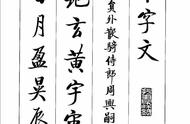 字文
員外散騎侍郎周興嗣
玄黃宇
月盈昃辰